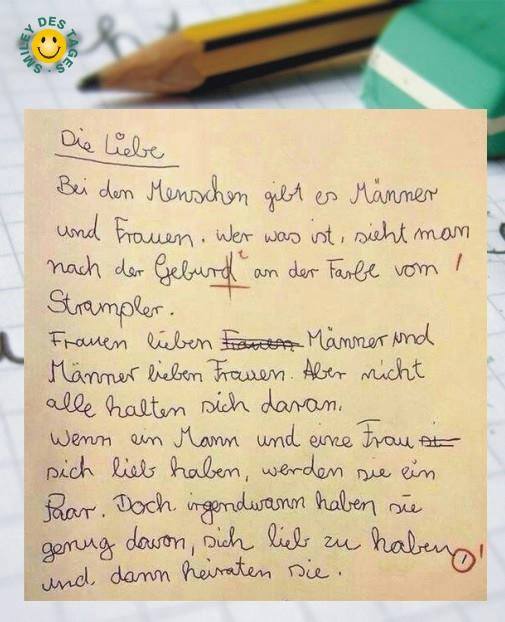 SMILEY DES TAGES
Die Liebe
Bei den Menschen gibt es Männer
und Frauen. Wer was ist, sieht man
nach der Geburd t an der Farbe vom !
Strampler.
Frauen lieben Frauen Männer und
Männer lieben Frauen. Aber nicht
alle halten sich daran.
Wenn ein Mann und eine Frau
sich lieb haben, werden sie ein
Paar. Doch irgendwann haben sie
genug davon, sich lieb zu haben, !
und dann heiraten sie.